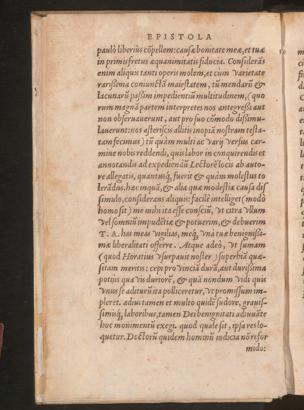 EPISTOLA
paulò liberius cõpellem: causæ bonitate meæ, et tuæ
in primis fretus æquanimitatis fiducia. Considerãs
enim aliquis tanti operis molem, et cum varietate
rarissima coniunctã maiestatem, tũ mendarũ &
lacunarũ passim impedientiũ multitudinem, (quo
rum magnã partem interpretes nos antegressi aut
non obseruauerunt, aut pro suo cõmodo dissimu-
lauerunt: nos asteriscis allitis inopiã nostram testa-
tam fecimus) tũ quàm multi ac varij versus car-
mine nobis reddendi, quis labor in conquirendis et
annotandis ad expediendũ Lectorē locis ab auto-
re allegatis, quantusq́; fuerit & quàm molestus to
lerãdus. hæc inquã, & alia quæ modestiæ causa dis
simulo, considerans aliquis: facilè intelliget (modo
homo sit) me mihi ita esse consciũ, vt citra vllum
vel somniũ impudẽtiæ & potuerim, & debuerim
T. A. has meas vigilias, meq́; vnà tuæ benignissi-
mæ liberalitati offerre. Atque adeò, vt sumam
(quod Horatius vsurpauit noster) superbiã quæ-
sitam meritis: cepi prouinciã durã, aut durissima
potius qua vis duriorē, & quã nondum vidi quis
vnus se aditurũ ita polliceretur, vt promissum im-
pleret. adiui tamen et multo quidẽ sudore, grauis-
simisq́; laboribus, tamen Dei benignitati adiuuãte
hoc monimentũ exegi. quod quale sit, ipsa res lo-
quetur. Doctorũ quidem hominũ iudicia nõ refor
modo: